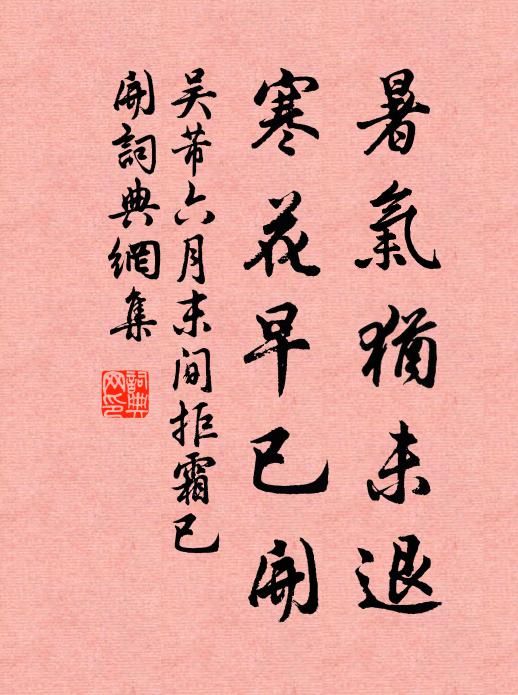 暑氣猶未退
寒花早已開
吴芾六月末間拒霜已
開詞典網集
詞典
网印